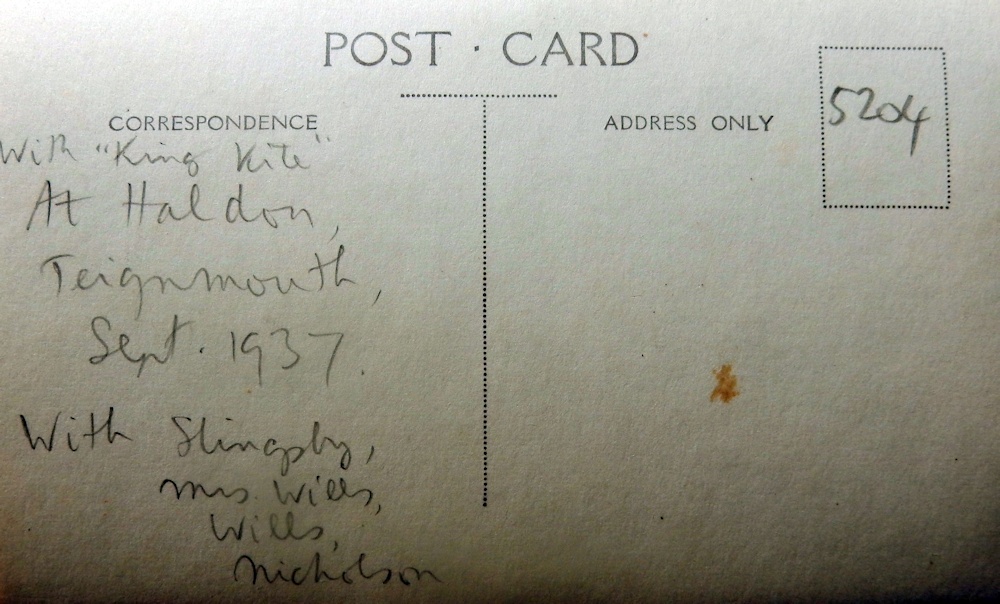 POST · CARD
CORRESPONDENCE
ADDRESS ONLY
5204
With "King Kite"
At Haldon,
Teignmouth,
Sept. 1937.
With Slingsby,
Mrs. Wills,
Wills,
Nicholson